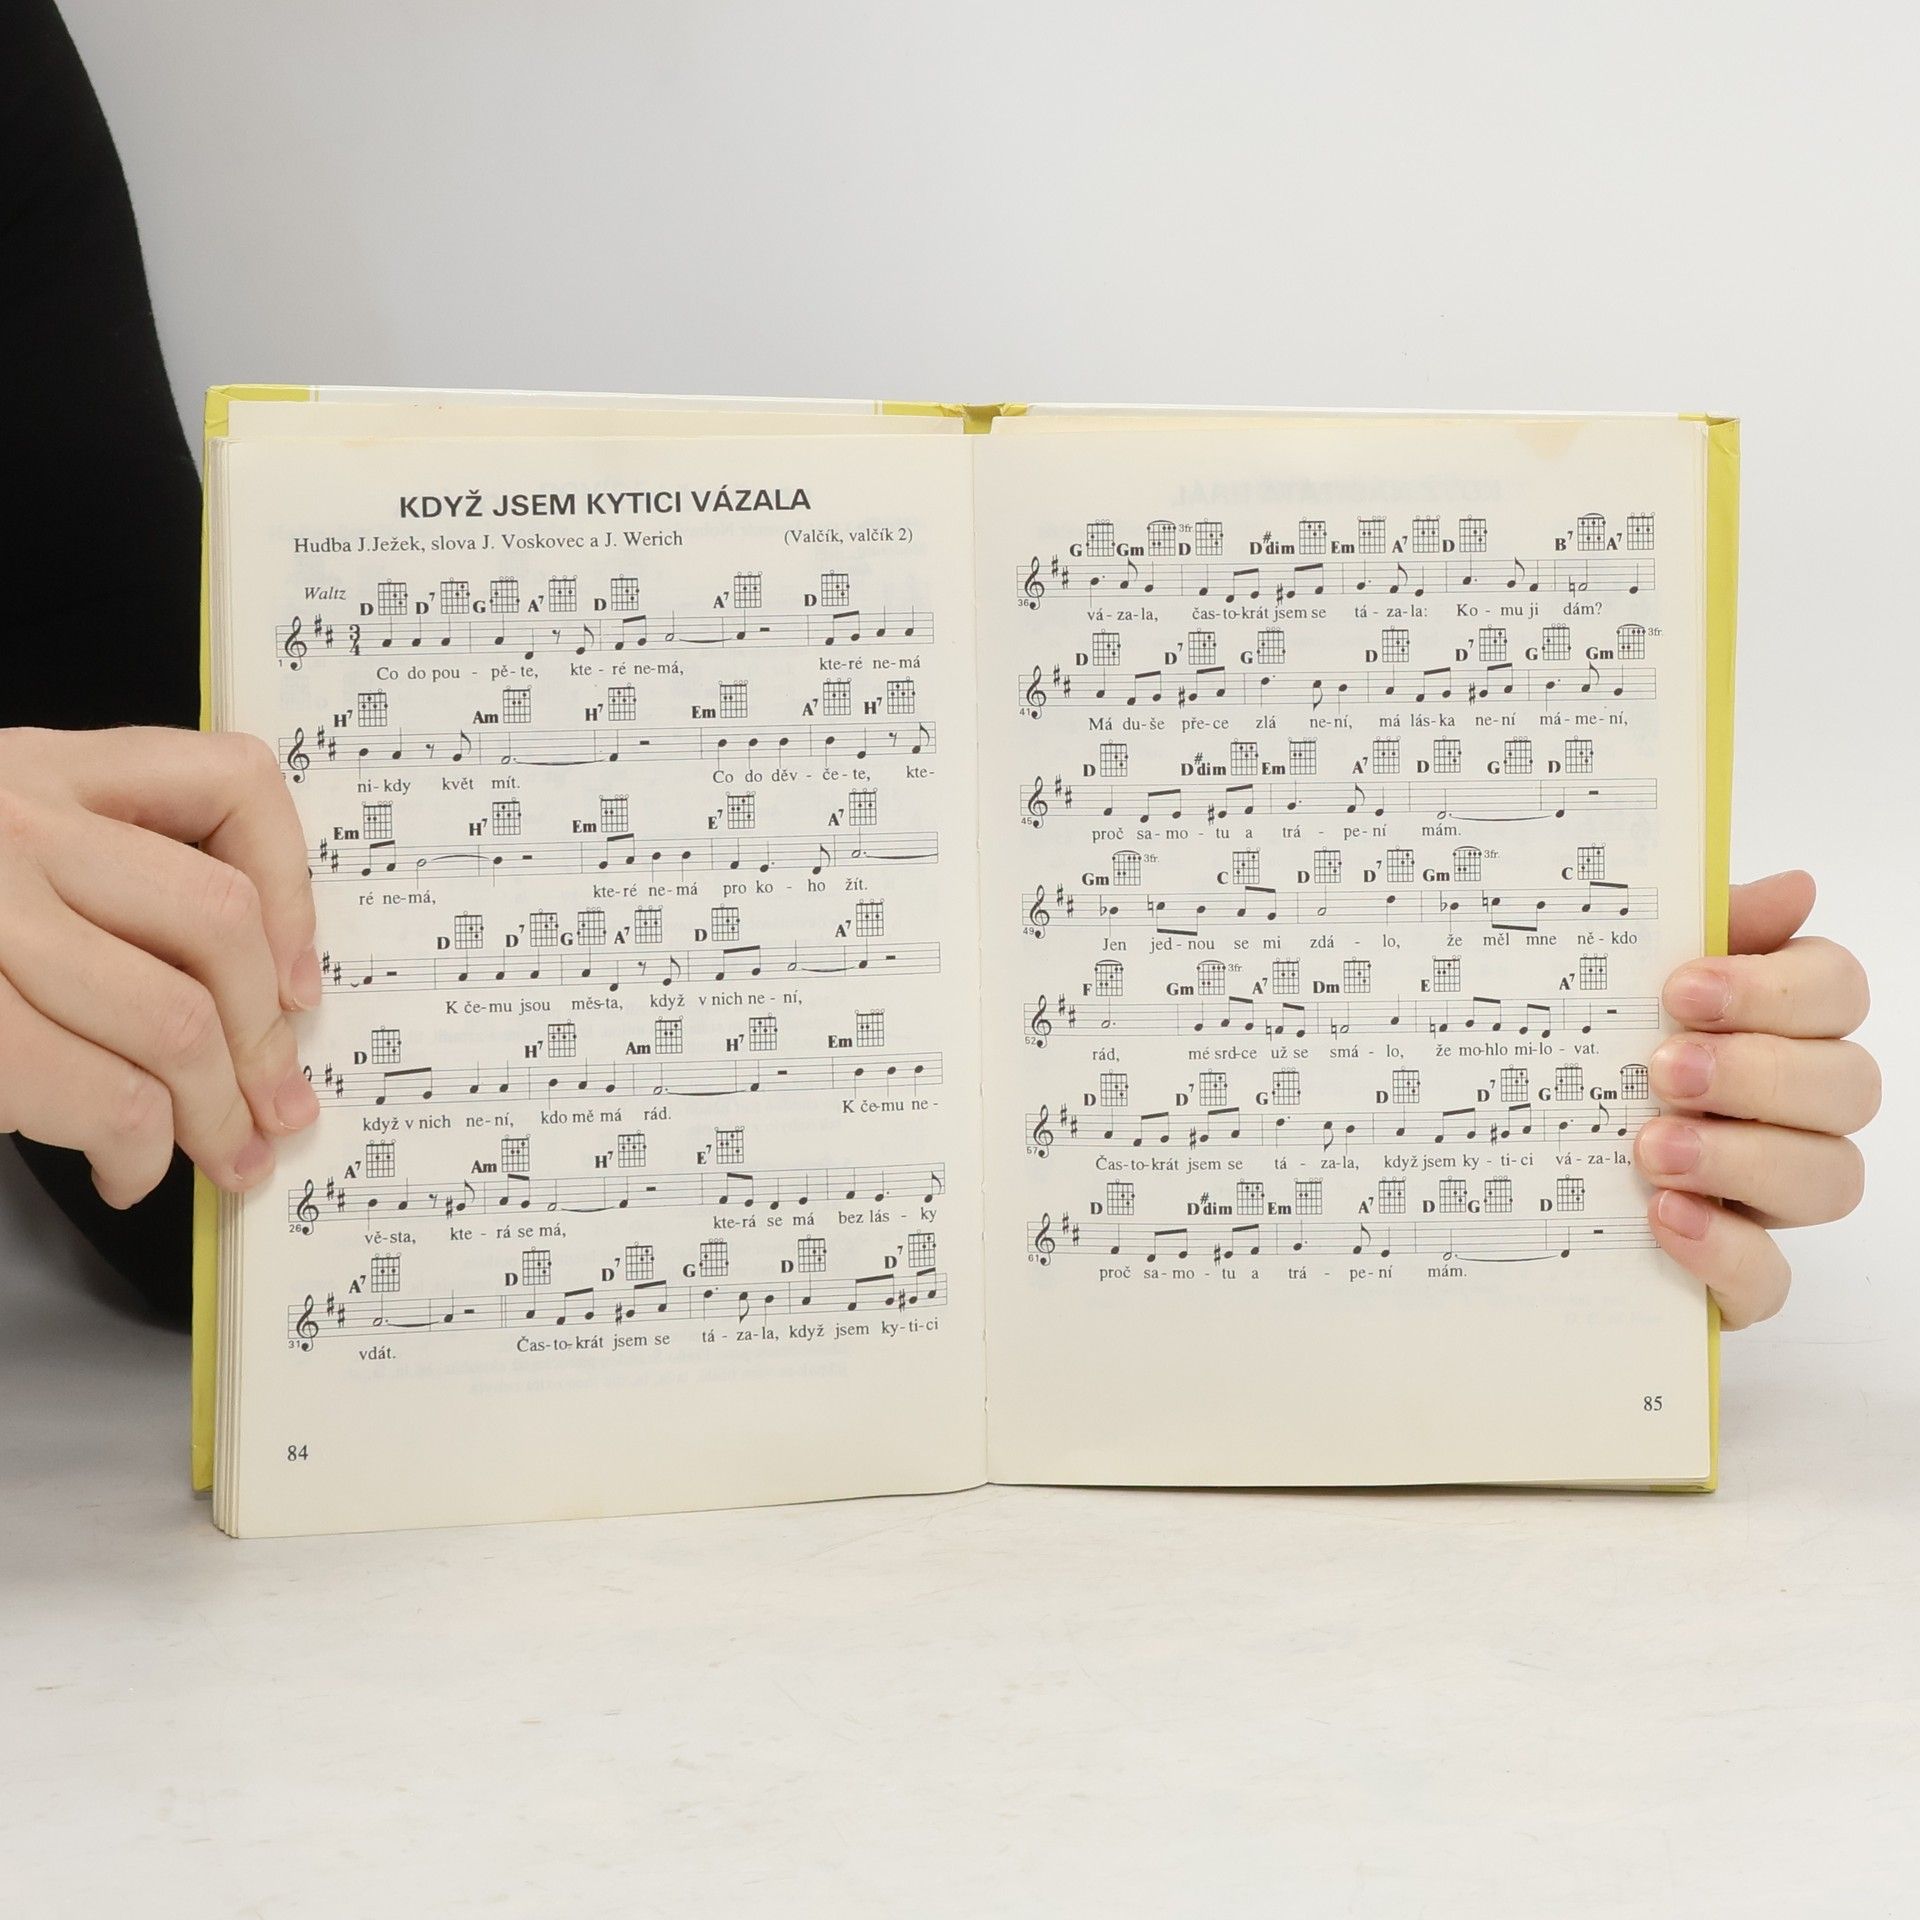 KDYŽ JSEM KYTICI VÁZALA
Hudba J.Ježek, slova J. Voskovec a J. Werich (Valčík, valčík 2)
Waltz D D7 G A7 D A7 D
1
Co do pou - pě- te, kte - ré ne-má, kte-ré ne-má
H7 Am H7 Em A7 H7
ni- kdy květ mít. Co do děv - če- te, kte-
Em H7 Em E7 A7
ré ne-má, kte-ré ne-má pro ko - ho žít.
D D7 G A7 D A7
K če-mu jsou měs-ta, když v nich ne - ní,
D H7 Am H7 Em
když v nich ne- ní, kdo mě má rád. K če-mu ne -
A7 Am H7 E7
26
vě-sta, kte - rá se má, kte-rá se má bez lás - ky
A7 D D7 G D D7
31
vdát. Čas-to-krát jsem se tá - za-la, když jsem ky-ti-ci
84
G Gm 3fr. D D#dim Em A7 D B7 A7
36
vá-za-la, čas-to-krát jsem se tá - za-la: Ko - mu ji dám?
D D7 G D D7 G Gm 3fr.
41
Má du-še pře-ce zlá ne-ní, má lás-ka ne-ní má-me-ní,
D D#dim Em A7 D G D
45
proč sa-mo - tu a trá - pe-ní mám.
Gm 3fr. C D D7 Gm 3fr. C
49
Jen jed-nou se mi zdá - lo, že měl mne ně-kdo
F Gm 3fr. A7 Dm E A7
52
rád, mé srd-ce už se smá - lo, že mo-hlo mi-lo - vat.
D D7 G D D7 G Gm
57
Čas-to-krát jsem se tá - za-la, když jsem ky - ti-ci vá - za-la,
D D#dim Em A7 D G D
61
proč sa-mo - tu a trá - pe-ní mám.
85